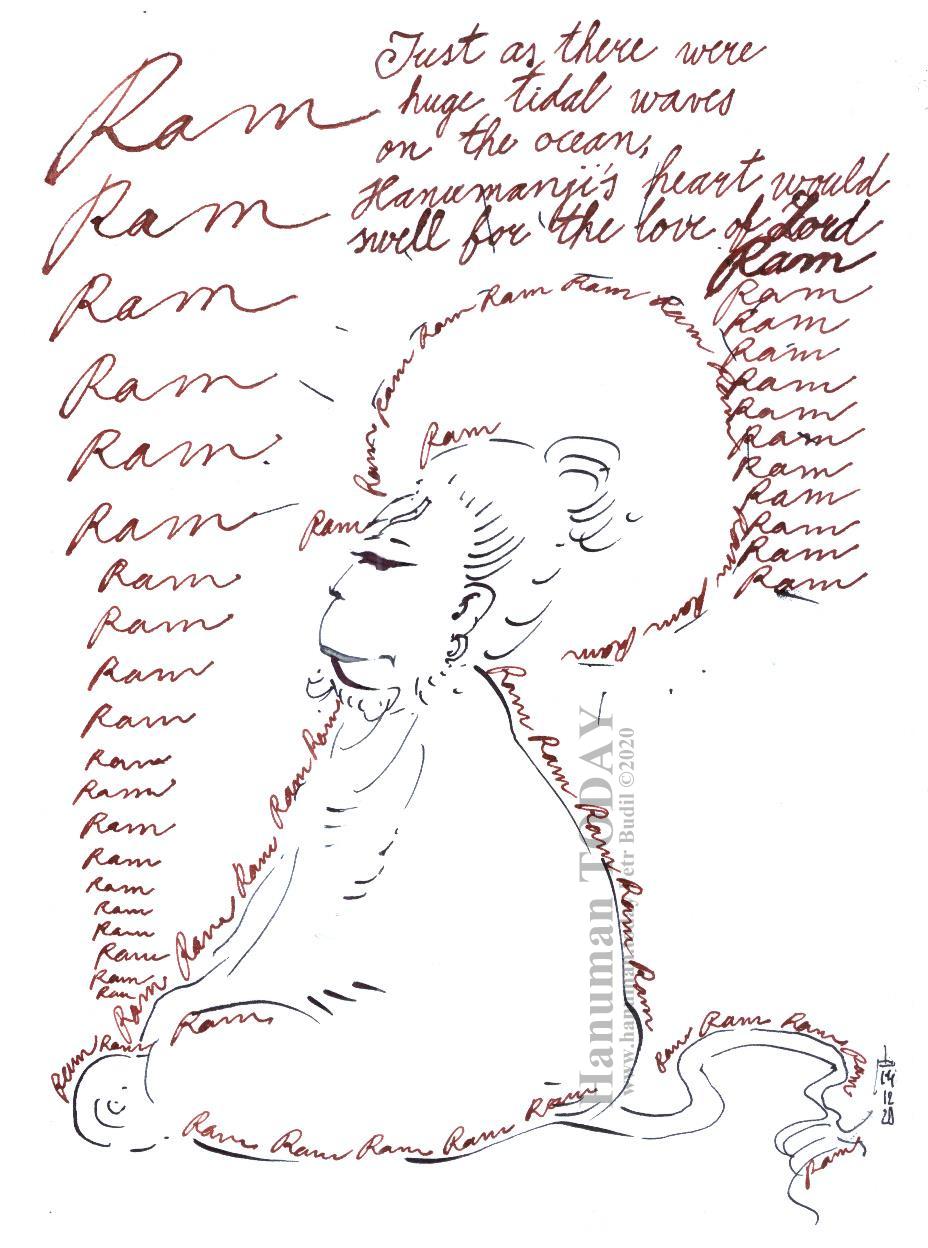 Just as there were
huge tidal waves
on the ocean,
Hanumanji's heart would
swell for the love of Lord
Ram
Ram
Ram
Ram
Ram
Ram
Ram
Ram
Ram
Ram
Ram
Ram
Ram
Ram
Ram
Ram
Ram
Ram
Ram
Ram
Ram
Ram
Ram
Ram
Ram
Ram
Ram
Ram
Ram
Ram
Ram
Ram
Ram Ram Ram Ram Ram Ram Ram Ram Ram Ram Ram Ram
Ram
Ram
Ram Ram Ram Ram Ram Ram
Ram Ram Ram Ram Ram
Ram Ram
Ram
Ram Ram Ram Ram Ram
Ram Ram Ram Ram
Ram
14
12
20
Hanuman TODAY
Petr Budil ©2020